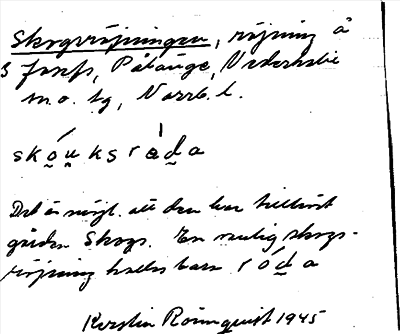 Skogsröjningen, röjning å
S Josefs, Pålänge, Nederkalix
sn. o. tg, Norrb. l.
skо̬u̬ksrø̄d̬a
Det är möjl. att den har tillhört
gården Skogs. En vanlig skogs-
röjning kallas bara rǿd̬a
Kerstin Rönnquist 1945